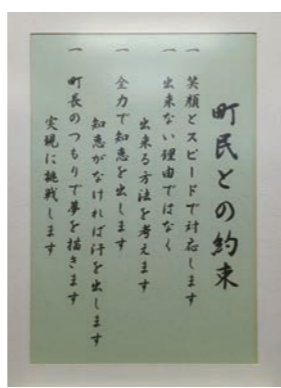 町民との約束
一 笑顔とスピードで対応します
一 出来ない理由ではなく
出来る方法を考えます
一 全力で知恵を出します
知恵がなければ汗を出します
一 町長のつもりで夢を描きます
実現に挑戦します